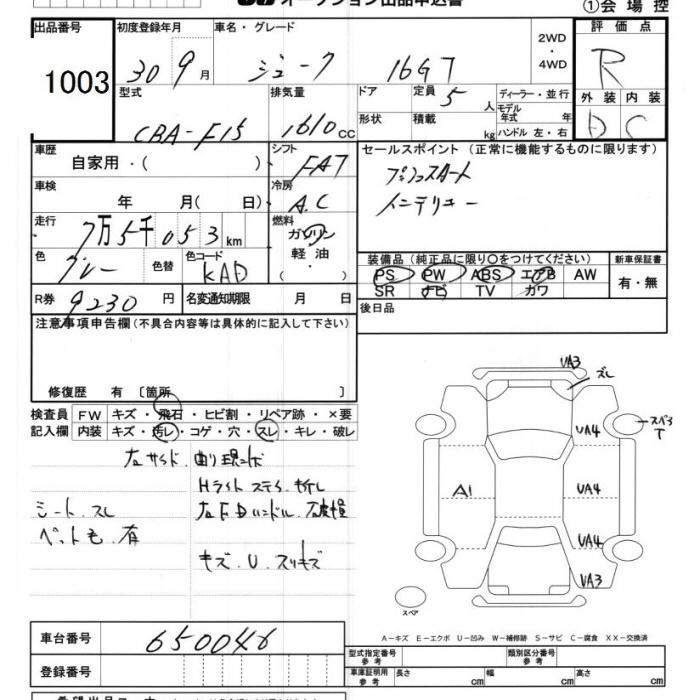 オークション出品申込書
①会場控
出品番号 初度登録年月 車名・グレード 2WD ・ 4WD 評価点
1003 30 9月 ジューク 16GT R
型式 排気量 ドア 定員 5 人 ディーラー・並行 外装 内装
CBA-F15 1610 cc 形状 積載 kg モデル年式 年 ハンドル 左・右 D C
車歴 自家用・( ) シフト FAT セールスポイント (正常に機能するものに限ります)
車検 年 月( 日) 冷房 A.C プッシュスタート
インテリキー
走行 7万5千053km 燃料 ガソリン 軽油 ・
色 グレー 色替 色コード KAD 装備品 (純正品に限り○をつけてください) 新車保証書
PS PW ABS エアB AW 有・無
SR ナビ TV カワ
R券 9230円 名変通知期限 月 日 後日品
注意事項申告欄(不具合内容等は具体的に記入して下さい)
修復歴 有〔箇所 〕
検査員 FW キズ・飛石・ヒビ割・リペア跡・×要
記入欄 内装 キズ・汚レ・コゲ・穴・スレ・キレ・破レ
UA3
ズレ
UA4
A1 UA4
UA4
UA3
スペア
Hライトステイ折レ
シート.スレ
ペット毛.有
キズ.U.スリキズ
A－キズ E－エクボ U－凹み W－補修跡 S－サビ C－腐食 XX－交換済
車台番号 650046
登録番号
型式指定番号 参考 類別区分番号 参考
車庫証明用 参考 長さ cm 幅 cm 高さ cm